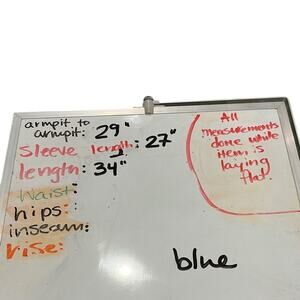 armpit to
armpit: 29"
Sleeve length: 27"
length: 34"
Waist:
hips:
inseam:
rise:
All
measurements
done while
item is
laying
flat.
blue